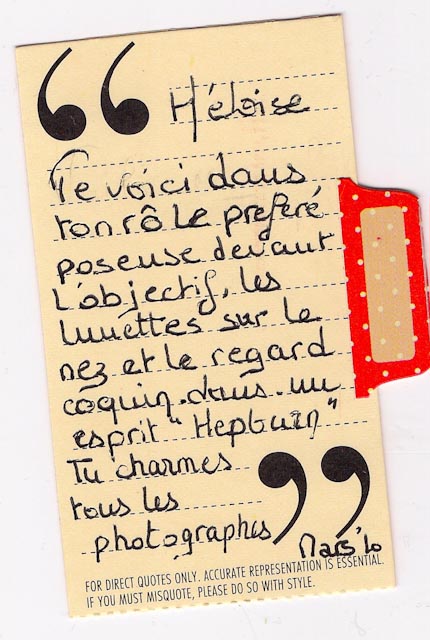 Héloïse
Te voici dans
ton rôle préféré
poseuse devant
l'objectif, les
lunettes sur le
nez et le regard
coquin dans un
esprit "Hepburn"
Tu charmes
tous les
photographes
Mars'10
FOR DIRECT QUOTES ONLY. ACCURATE REPRESENTATION IS ESSENTIAL.
IF YOU MUST MISQUOTE, PLEASE DO SO WITH STYLE.